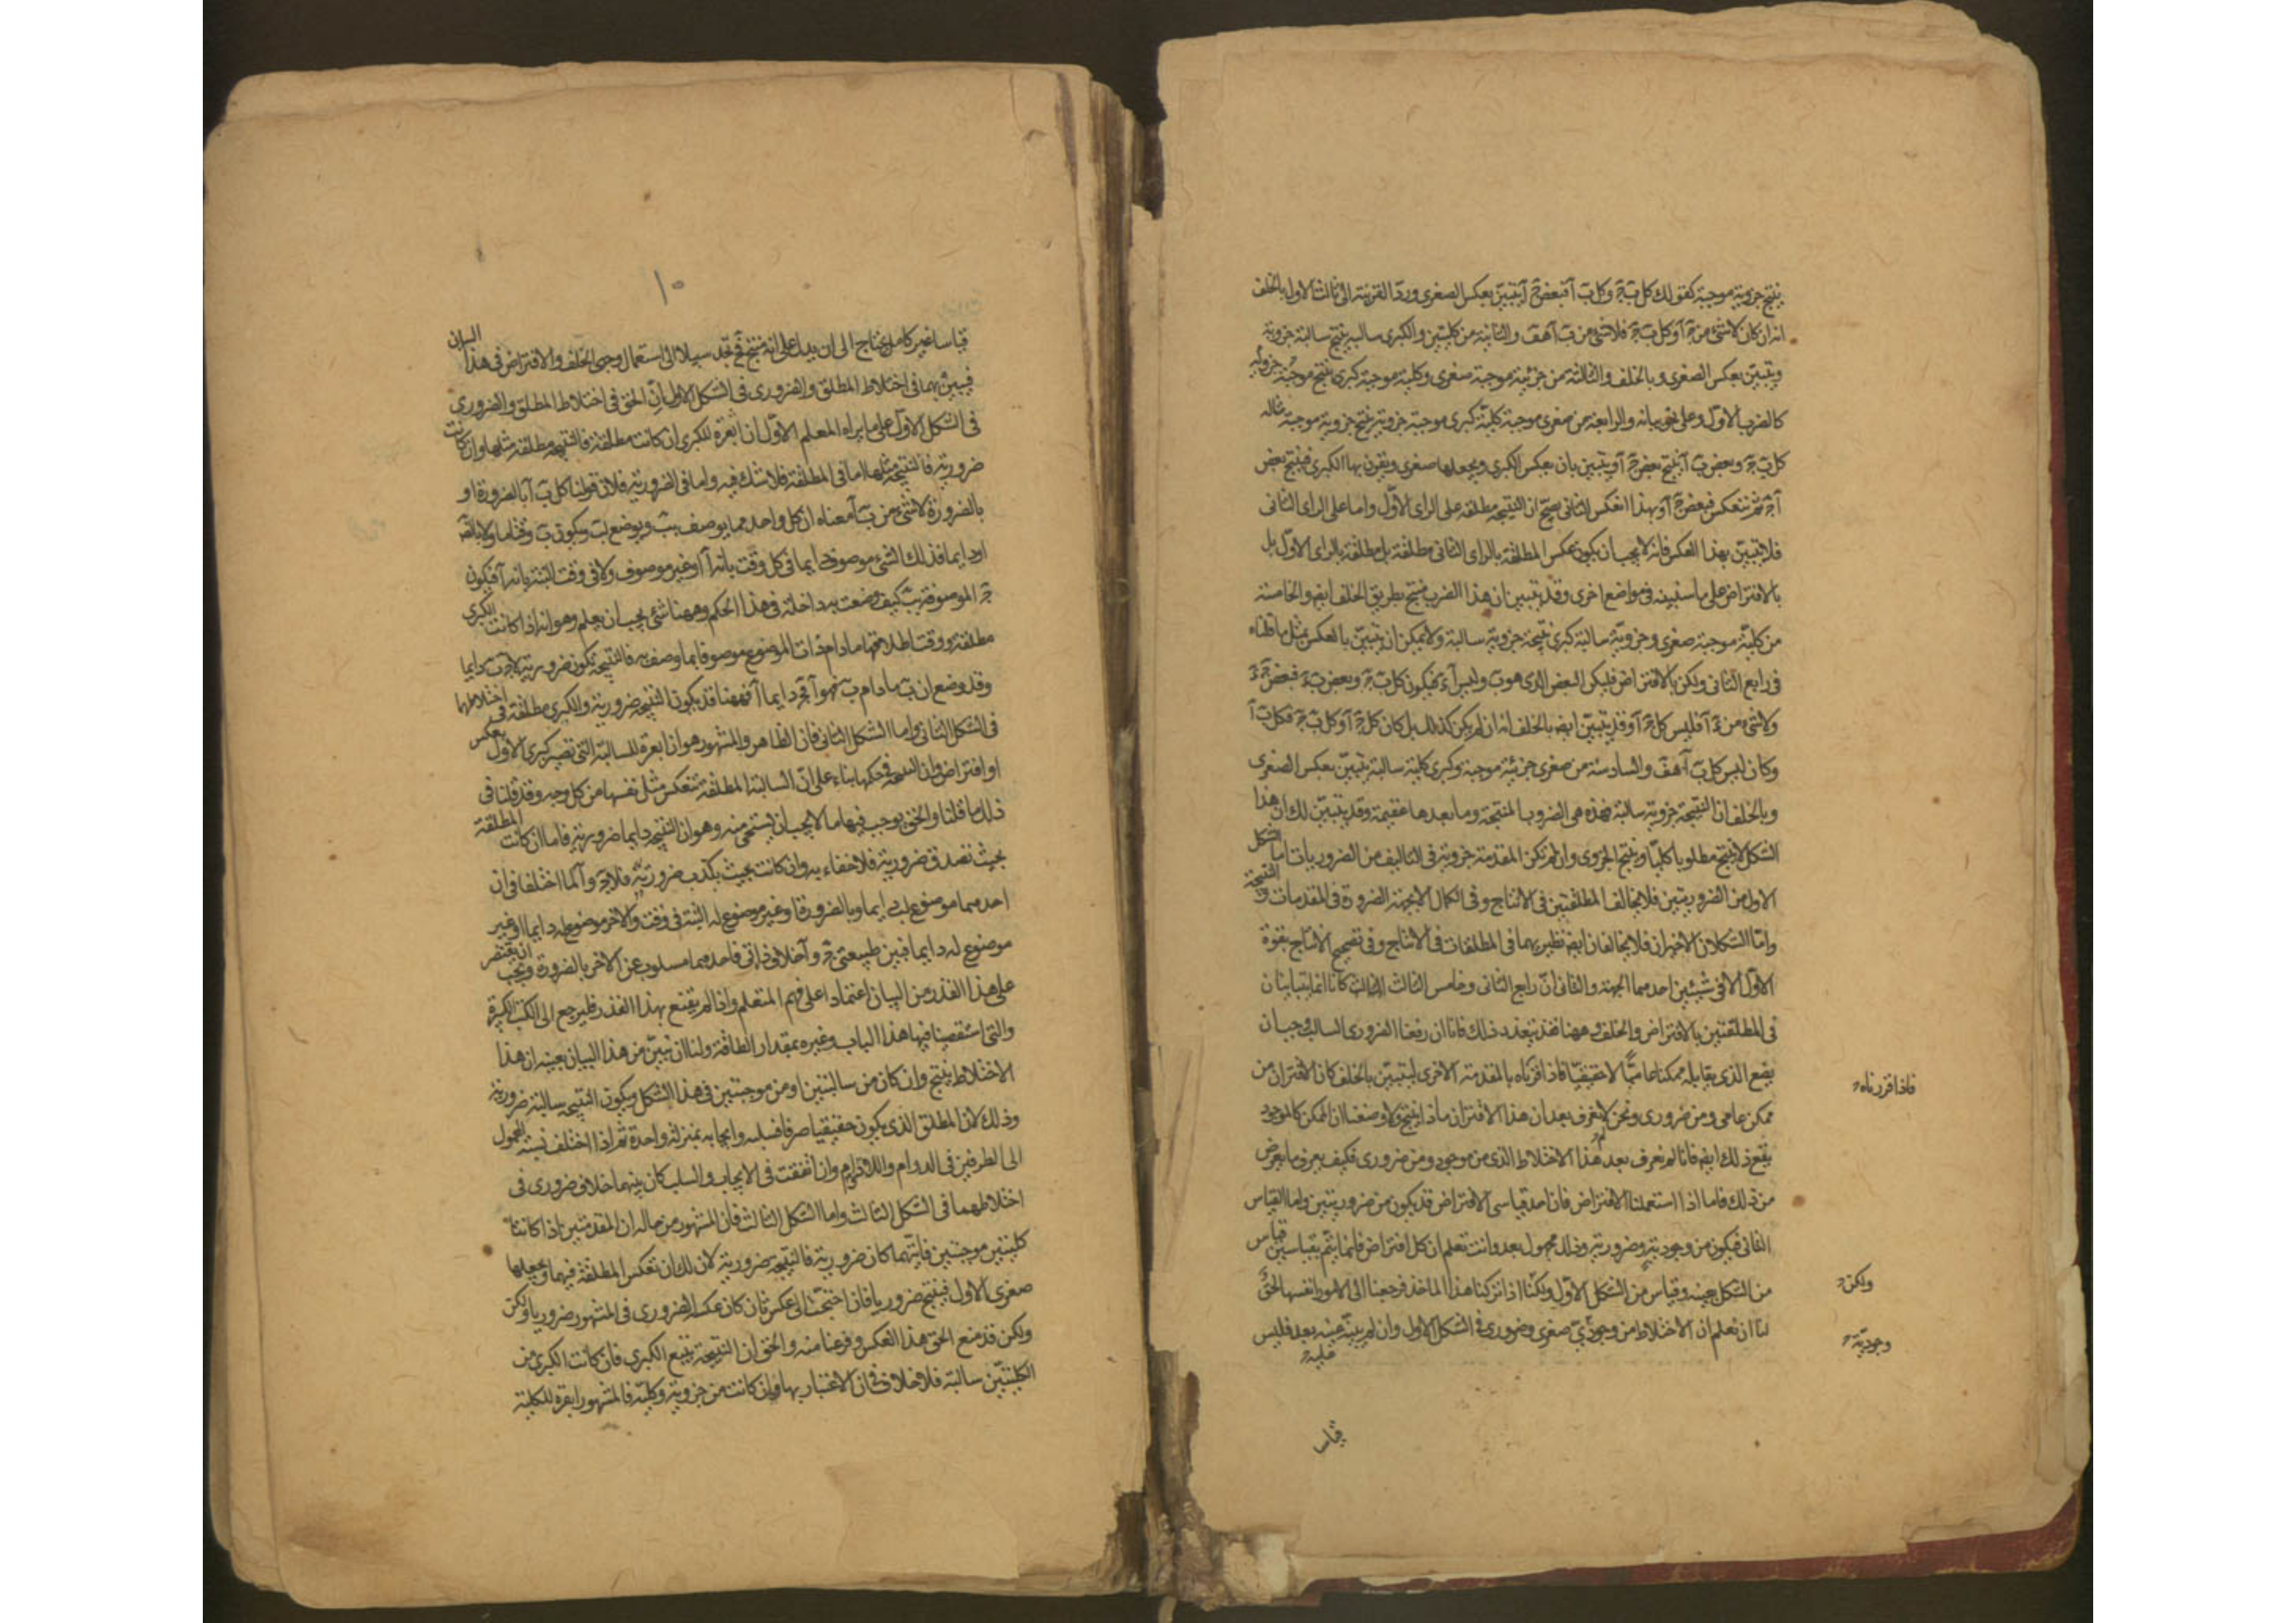 ينتج جزوية موجبة كقولك كل ب ج وكل ب آ فبعض ج آ يتبين بعكس الصغرى ورد القرينة الى ثالث الاول بالخلف
انه ان كان لاشئ من ج آ وكل ب ج فلاشئ من ب آ هف والثانية من كليتين والكبرى سالبه ينتج سالبة جزوية
ويتبين بعكس الصغرى وبالخلف والثالثة من جزئية موجبة صغرى وكلية موجبة كبرى ينتج موجبة جزوية
كالضرب الاول وعلى نحو بيانه والرابعة من صغرى موجبة كلية كبرى موجبة جزوية ينتج جزوية موجبة مثاله
كل ب ج وبعض ب آ ينتج بعض ج آ ويتبين بان يعكس الكبرى ويجعلها صغرى ويقرن بها الكبرى فينتج بعض
آ ج ثم ينعكس فبعض ج آ وبهذا العكس الثانى يصح ان النتيجة مطلقة على الراى الاول واما على الراى الثانى
فلا يتبين بهذا العكس فانه لا يجب ان يكون عكس المطلقة بالراى الثانى مطلقة بل مطلقة بالراى الاول بل
بالافتراض على ما سنبينه فى مواضع اخرى وقد يتبين ان هذا الضرب منتج بطريق الخلف ايضا والخامسة
من كلية موجبة صغرى وجزوية سالبة كبرى نتيجة جزوية سالبة ولا يمكن ان يتبين بالعكس بمثل ما قلناه
فى رابع الثانى ولكن بالافتراض فليكن البعض الذى هو ب وليس آ ء فيكون كل ب ج وبعض ب ء فبعض ج ء
ولاشئ من ء آ فليس كل ج آ وقد يتبين ايضا بالخلف انه ان لم يكن كذلك بل كان كل ج آ وكل ب ج فكل ب آ
وكان ليس كل ب آ هف والسادسة من صغرى جزئية موجبة وكبرى كلية سالبة يتبين بعكس الصغرى
وبالخلف ان النتيجة جزوية سالبة فهذه هى الضروب المنتجة وما بعدها عقيمة وقد يتبين لك ان هذا
الشكل لا ينتج مطلوبا كليا وينتج الجزوى وان لم تكن المقدمة جزوية فى التاليف من الضروريات اما الشكل
الاول من الضروريتين فلا يخالف المطلقتين فى الانتاج وفى الكمال الا بجهة الضرورة فى المقدمات والنتيجة
واما الشكلان الاخيران فلا يخالفان ايضا نظيريهما فى المطلقات فى الانتاج وفى تصحيح الانتاج بقوة
الاول الا فى شيئين احدهما الجهة والثانى ان رابع الثانى وخامس الثالث كانا انما يتبينان
فى المطلقتين بالافتراض والخلف وههنا فقد يتعذر ذلك فانا ان رفعنا الضرورى السالب وجب ان
يضع الذى يقابله ممكنا عاميا لا حقيقيا فاذا قرناه بالمقدمة الاخرى ليتبين بالخلف كان الاقتران من
فاذا قرناه
ممكن عامى ومن ضرورى ونحن لا نعرف بعد ان هذا الاقتران ماذا ينتج ولا وضعنا ان الممكن كالموجود
ينفع ذلك ايضا فانا لم نعرف بعد هذا الاختلاط الذى من موجود ومن ضرورى فكيف يعرف ما يعرض
من ذلك فاما اذا استعملنا الافتراض فان احد قياسى الافتراض قد يكون من ضروريتين واما القياس
الثانى فيكون من وجودية وضرورية وذلك مجهول بعد وانت تعلم ان كل افتراض فانما يتم بقياسين قياس
من الشكل بعينه وقياس من الشكل الاول ولكنا اذا تركنا هذا الماخذ فرجعنا الى الامور انفسها الحق
ولكن
لنا ان نعلم ان الاختلاط من وجودى صغرى وضرورى فى الشكل الاول وان لم يبينه عينه بعد فليس
وجودية
قياس
١٠
قياسا غير كامل يحتاج الى ان يدل على انه منتج فتجد سبيلا الى استعمال وجهى الخلف والافتراض فى هذا البيان
فيبين بهما فى اختلاط المطلق والضرورى فى الشكل الاول ان الحق فى اختلاط المطلق والضرورى
فى الشكل الاول على ما يراه المعلم الاول ان العبرة للكبرى ان كانت مطلقة فالنتيجة مطلقة مثلها وان كانت
ضرورية فالنتيجة مثلها اما فى المطلقة فلا شك فيه واما فى الضرورية فلان قولنا كل ب آ بالضرورة او
بالضرورة لاشئ من ب آ معناه ان كل واحد مما يوصف بب ويوضع لب ويكون ب وقتا ما ولا دايما
او دايما فذلك الشئ موصوف دايما فى كل وقت بانه آ او غير موصوف ولا فى وقت البتة بانه آ فيكون
ج الموصوفة بب كيف وضعت به داخلة فى هذا الحكم وههنا شئ يجب ان يعلم وهو انه اذا كانت الكبرى
مطلقة ووقت اطلاقها ما دام ذات الموضوع موصوفا بما وصف به فالنتيجة تكون ضرورية لان ج ب دايما
وقد وضع ان ب ما دام ب فهو آ فج دايما آ فههنا قد يكون النتيجة ضرورية والكبرى مطلقة فى اختلاطهما
فى الشكل الثانى واما الشكل الثانى فان الظاهر والمشهور هو ان العبرة للسالبة التى تصير كبرى الاول بعكس
او افتراض وان النتيجة فى حكمها بناء على ان السالبة المطلقة تنعكس مثل نفسها من كل وجه وقد قلنا فى
ذلك ما قلنا والحق يوجب فيها ما لا يجب ان يستحى منه وهو ان النتيجة دايما ضرورية فاما ان كانت المطلقة
بحيث تصدق ضرورية فلا خفاء به وان كانت بحيث يكذب ضرورية فلان ج وآ لما اختلفا فى ان
احدهما موضوع لب دايما وبالضرورة او غير موضوع له البتة فى وقت والاخر موضوع له دايما او غير
موضوع له دايما فبين طبيعتى ج وآ خلاف ذاتى فاحدهما مسلوب عن الاخر بالضرورة ويجب ان يقتصر
على هذا القدر من البيان اعتمادا على فهم المتعلم واذا لم يقنع بهذا القدر فليرجع الى الكتب الكبيرة
والتى استقصينا فيها هذا الباب وغيره بمقدار الطاقة ولنا ان نبين من هذا البيان بعينه ان هذا
الاختلاط ينتج وان كان من سالبتين او من موجبتين فى هذا الشكل ويكون النتيجة سالبة ضرورية
وذلك لان المطلق الذى يكون حقيقيا صرفا فسلبه وايجابه بمنزلة واحدة ثم اذا اختلف نسبة المحمول
الى الطرفين فى الدوام واللادوام وان اتفقت فى الايجاب والسلب كان بينهما خلاف ضرورى فى
اختلاطهما فى الشكل الثالث واما الشكل الثالث فان المشهور من حاله ان المقدمتين اذا كانتا
كليتين موجبتين فايتهما كان ضرورية فالنتيجة ضرورية لان لك ان تعكس المطلقة فيهما وتجعلها
صغرى الاول فينتج ضروريا فان احتجت الى عكس ثان كان عكس الضرورى فى المشهور ضروريا ولكن
ولكن قد منع الحق هذا العكس وفرغنا منه والحق ان النتيجة يتبع الكبرى فان كانت الكبرى من
الكليتين سالبة فلا خلاف فى ان الاعتبار بها وان كانت من جزوية وكلية فالمشهور ان العبرة للكلية